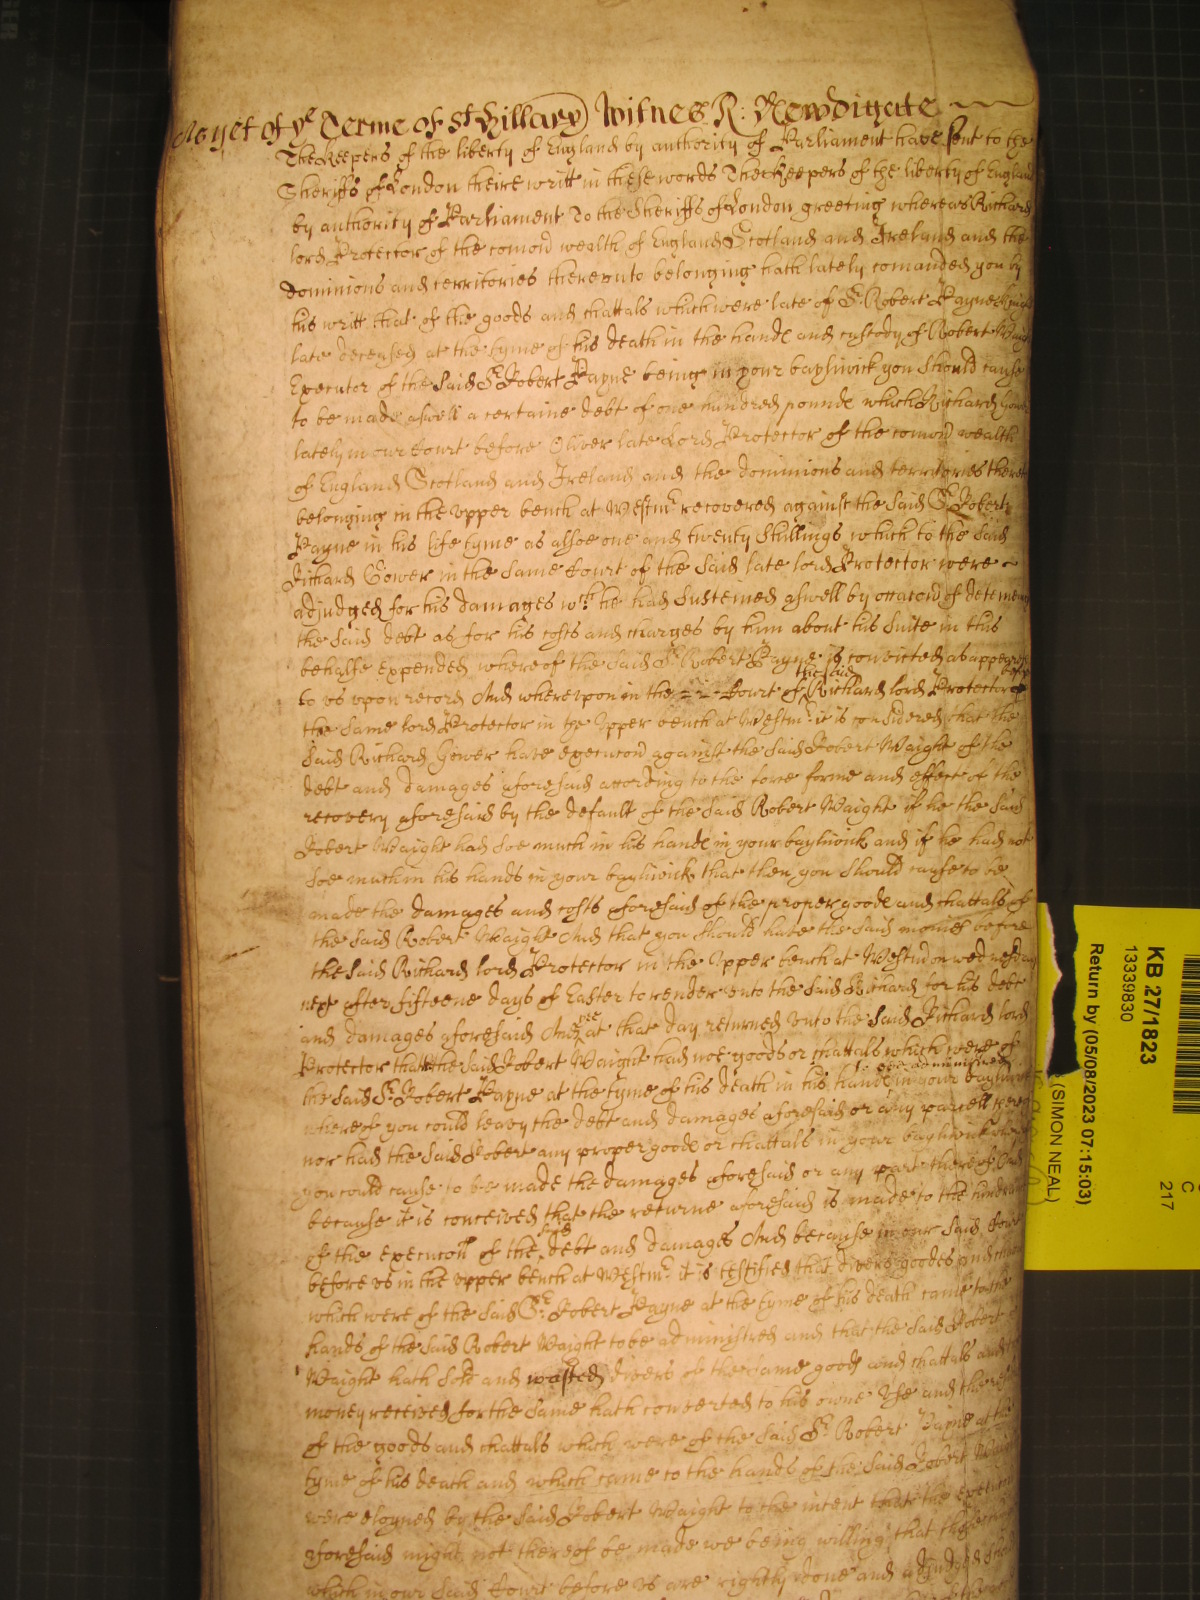 As yet of ye Terme of St Hillary Witnes R: Newdigate
The Keepers of the liberty of England by authority of Parliament have sent to the
Sheriffs of London theire writt in these words The Keepers of the liberty of England
by authority of Parliament To the Sheriffs of London greeting whereas Richard
lord Protector of the comon wealth of England Scotland and Ireland and the
dominions and territories thereunto belonging hath lately comanded you by
his writt that of the goods and chattals which were late of Sr Robert Payne
late deceased at the tyme of his death in the hande and custody of Robert
Executor of the said Sr Robert Payne being in your bayliwick you should cause
to be made aswell a certaine debt of one hundred pounde which Richard
lately in our Court before Oliver late Lord Protector of the comon wealth
of England Scotland and Ireland and the dominions and territories
belonging in the upper bench at Westmr recovered against the said Sr Robert
Payne in his life tyme as alsoe one and twenty shillings which to the said
Richard Gower in the same Court of the said late lord Protector were
adjudged for his damages wch he had susteined aswell by occacon of
the said debt as for his costs and charges by him about his suite in this
behalfe expended whereof the said Sr Robert Payne is convicted as
to us upon record And whereupon in the Court of the said Richard lord Protector before
the same lord Protector in the Upper bench at Westmr it is considered that the
said Richard Gower have execucon against the said Robert Waight of the
debt and damages aforesaid according to the force forme and effect of the
recovery aforesaid by the default of the said Robert Waight if he the said
Robert Waight had soe much in his hande in your bayliwick and if he had not
soe much in his hands in your bayliwick that then you should cause to be
made the damages and costs aforesaid of the proper goode and chattals of
the said Robert Waight And that you should have the said monies before
the said Richard lord Protector in the Upper bench at Westm on wednesday
next after fifteene days of Easter to render unto the said Richard for his debt
and damages aforesaid And yee at that day returned unto the said Richard lord
Protector that the said Robert Waight had not goods or chattals which were of
the said Sr Robert Payne at the tyme of his death in his hande to be administred in your
whereof you could leavy the debt and damages aforesaid or any parcell
nor had the said Robert any proper goode or chattals in your bayliwick
you could cause to be made the damages aforesaid or any part thereof And
because it is conceived that the returne aforesaid is made to the
of the execucon of the said debt and damages And because in our said Court
before us in the upper bench at Westmr it is testified that divers goodes and
which were of the said Sr Robert Payne at the tyme of his death came to the
hands of the said Robert Waight to be administred and that the said Robert
Waight hath sold and wasted divers of the same goods and chattals and
money received for the same hath converted to his owne use and the
of the goods and chattals which were of the said Sr Robert Payne at the
tyme of his death and which came to the hands of the said Robert
were eloyned by the said Robert Waight to the intent that the
aforesaid might not thereof be made we being willing that
which in our said Court before us are rightly done and adjudged
KB 27/1823
13339830
Return by (05/08/2023 07:15:03)
(SIMON NEAL)
C
217